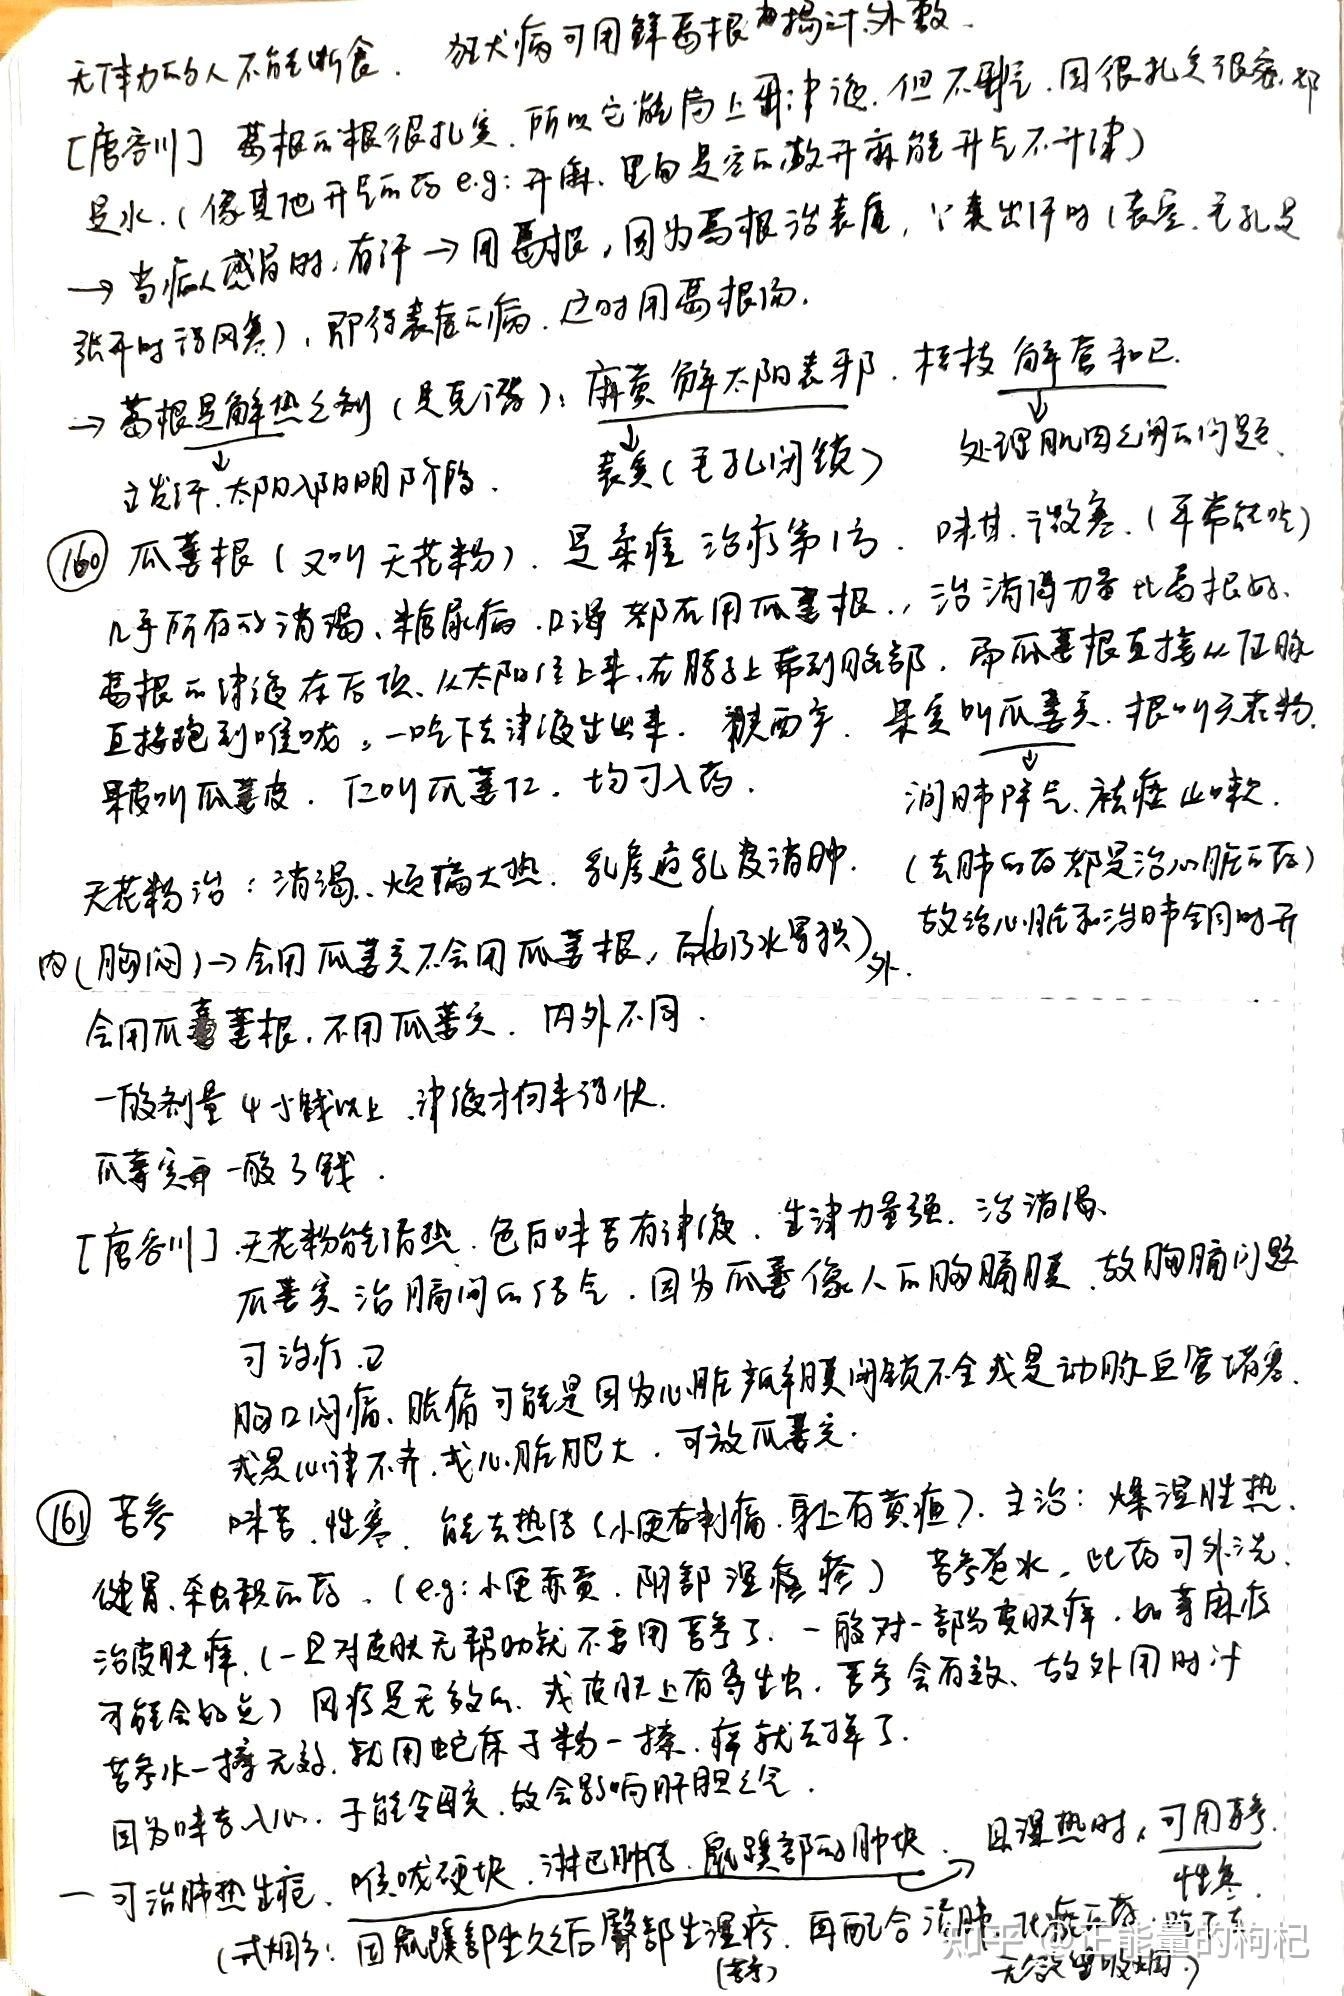 无体力的人不能断食. 狂犬病可用鲜葛根捣汁外敷.
[唐容川] 葛根的根很扎实. 所以它能向上升津液. 但不升气. 因很扎实很密. 都
是水. (像其他升气的药 e.g: 升麻. 里面是空的故升麻能升气不升津)
→ 当病人感冒时, 有汗 → 用葛根, 因为葛根治表虚, 出汗时 (表虚. 毛孔是
张开时得风寒), 即得表虚的病. 这时用葛根汤.
→ 葛根是解热之剂 (是克 ): 麻黄解太阳表邪. 桂枝解营和卫.
主发汗. 太阳入阳明阶段. 表实 (毛孔闭锁) 处理肌肉之间的问题.
160 瓜蒌根 (又叫天花粉). 是柔痉治疗第1方. 味甘. 微寒. (平常能吃)
几乎所有的消渴、糖尿病. 口渴都在用瓜蒌根., 治消渴力量比葛根好.
葛根的津液在后项. 从太阳经上来. 在脖子上带到胳部. 而瓜蒌根直接从任脉
直接跑到喉咙。一吃下去津液生出来. 陕西产. 果实叫瓜蒌实. 根叫天花粉.
果皮叫瓜蒌皮. 仁叫瓜蒌仁. 均可入药. 润肺降气. 祛痰止咳.
天花粉治: 消渴、烦满大热. 乳房通乳皮消肿. (去肺的药都是治心脏的药)
内 (胸闷) → 会用瓜蒌实不会用瓜蒌根. 而 ( 水 ) 外. 故治心脏和治肺会同时开
会用瓜蒌根. 不用瓜蒌实. 内外不同.
一般剂量4-5钱以上. 津液才回来得快.
瓜蒌实一般3钱.
[唐容川]. 天花粉能清热. 色白味苦有津液. 生津力量强. 治消渴、
瓜蒌实治膈间的结气. 因为瓜蒌像人的胸膈膜. 故胸膈问题
可治疗.
胸口闷痛、胀痛可能是因为心脏瓣膜闭锁不全或是动脉血管堵塞.
或是心律不齐. 或心脏肥大. 可放瓜蒌实.
161 苦参 味苦. 性寒. 能去热结 (小便有刺痛. 身上有黄疸). 主治: 燥湿胜热.
健胃. 杀虫积的药. (e.g: 小便赤黄. 阴部湿疹) 苦参煮水. 此药可外洗.
治皮肤痒. (一旦对皮肤无帮助就不要用苦参了. 一般对一部分皮肤痒. 如荨麻疹
可能会好点) 风疹是无效的. 或皮肤上有寄生虫. 苦参会有效、故外用时汁
苦参水一擦无效. 就用蛇床子粉一擦. 痒就去掉了.
因为味苦入心. 子能令母实. 故会影响肝胆之气.
一 可治肺热生疮、喉咙硬块. 淋巴肿结. 鼠蹊部的肿块. 且湿热时, 可用苦参.
性寒.
( : 因鼠蹊部坐久之后臀部生湿疹. 再配合治肺
(苦参)
知乎 @正能量的枸杞